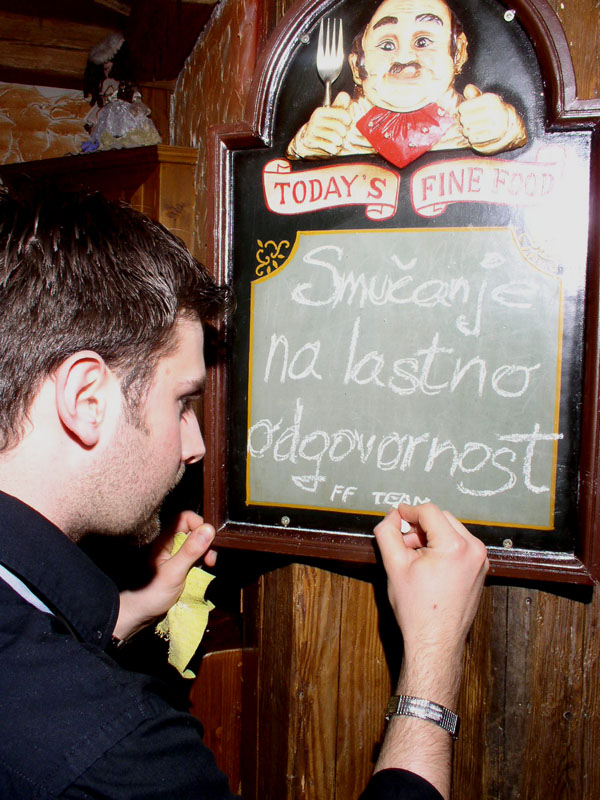 TODAY'S FINE FOOD
Smučanje
na lastno
odgovornost
FF TEAM